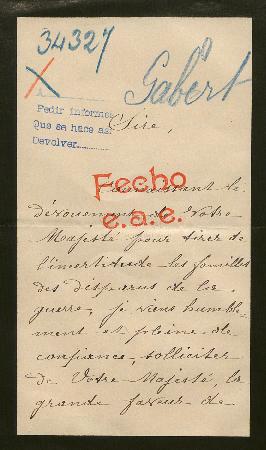 34327
Gabert
Pedir informes
Que se hace así
Devolver
Sire,
Fecho
e.a.e.
Connaissant le
dévouement de Votre
Majesté pour tirer de
l'incertitude les familles
des disparus de la
guerre, je viens humble-
ment et pleine de
confiance, solliciter
de Votre Majesté, la
grande faveur de